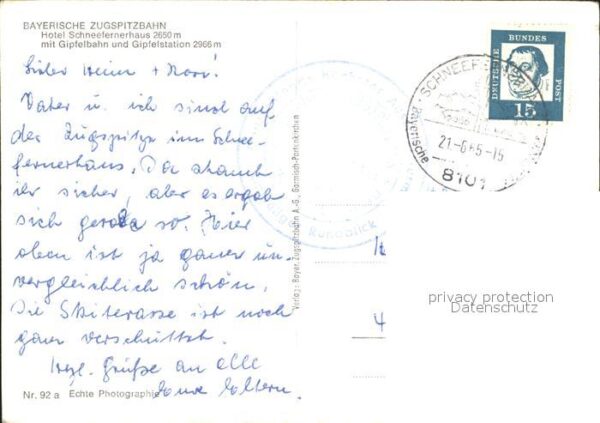 BAYERISCHE ZUGSPITZBAHN
Hotel Schneefernerhaus 2650 m
mit Gipfelbahn und Gipfelstation 2966 m
Vater u. ich sind auf
der Zugspitze im Schnee-
fernerhaus. Da staunt
ihr sicher, aber es ergab
sich gerade so. Hier
oben ist ja ganz un-
vergleichlich schön.
Die Skiterasse ist noch
ganz verschüttet.
Grüße an alle
Eure Eltern.
Nr. 92 a Echte Photographie
Verlag: Bayer. Zugspitzbahn A.-G., Garmisch-Partenkirchen
Rundblick
SCHNEEF
Bayerische
21-6.65-15
8101
DEUTSCHE
BUNDES
POST
15
privacy protection
Datenschutz